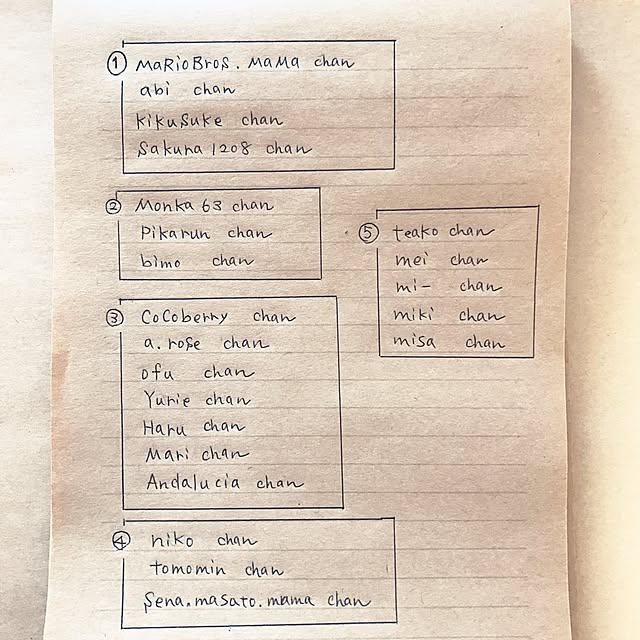 ① MaRioBros. MaMa chan
abi chan
kikuSuke chan
Sakura 1208 chan
② Monka 63 chan
Pikarun chan
bimo chan
③ CoCoberry chan
a. rose chan
ofu chan
Yurie chan
Haru chan
Mari chan
Andalucia chan
④ niko chan
tomomin chan
Sena.masato.mama chan
⑤ teako chan
mei chan
mi- chan
miki chan
misa chan